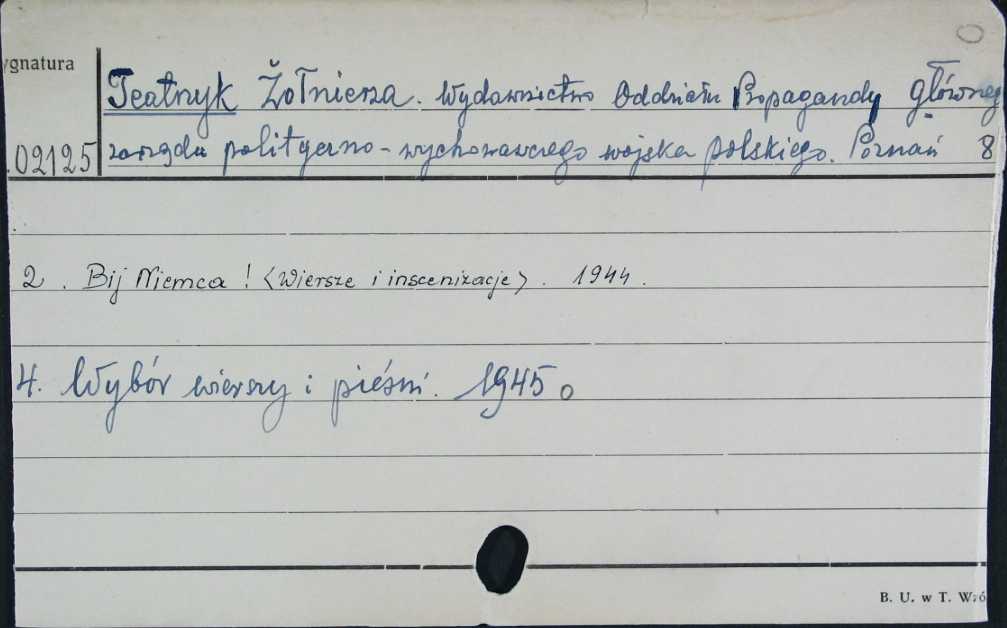 ygnatura
Teatrzyk Żołnierza. Wydawnictwo Oddziału Propagandy Główneg
02125 zarządu polityczno-wychowawczego wojska polskiego. Poznań 8
2. Bij Niemca! <Wiersze i inscenizacje>. 1944.
4. Wybór wierszy i pieśni. 1945
B. U. w T. Wzó